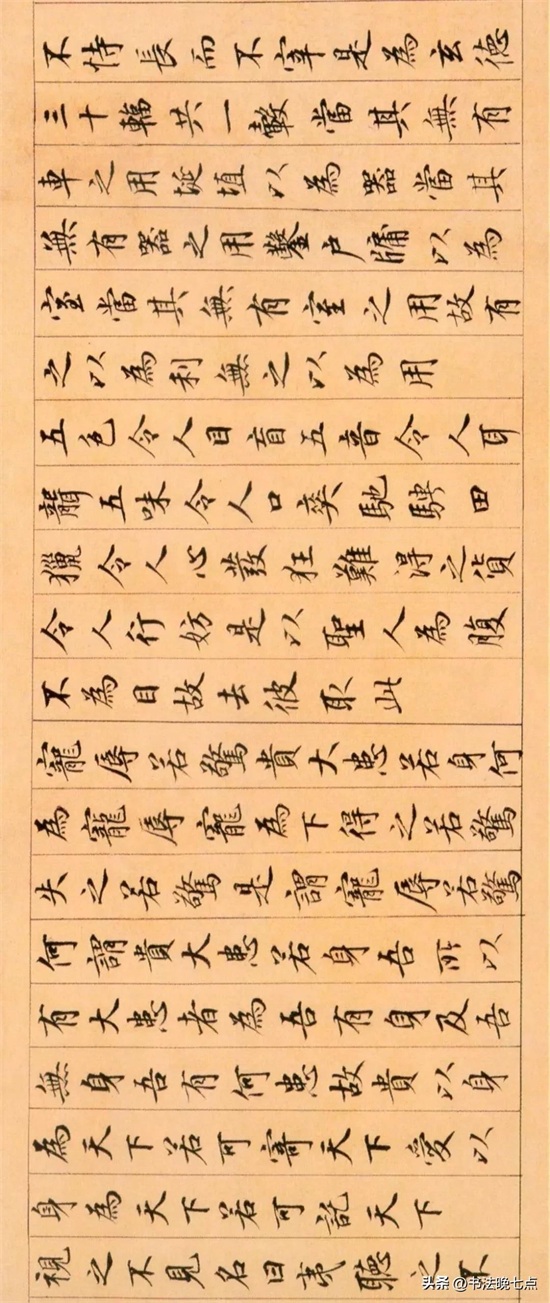 不恃長而不宰是為玄德
三十輻共一轂當其無有
車之用埏埴以為器當其
無有器之用鑿戶牖以為
室當其無有室之用故有
之以為利無之以為用
五色令人目盲五音令人耳
聾五味令人口爽馳騁田
獵令人心發狂難得之貨
令人行妨是以聖人為腹
不為目故去彼取此
寵辱若驚貴大患若身何
為寵辱寵為下得之若驚
失之若驚是謂寵辱若驚
何謂貴大患若身吾所以
有大患者為吾有身及吾
無身吾有何患故貴以身
為天下若可寄天下愛以
身為天下若可託天下
視之不見名曰夷聽之不
头条 @书法晚七点